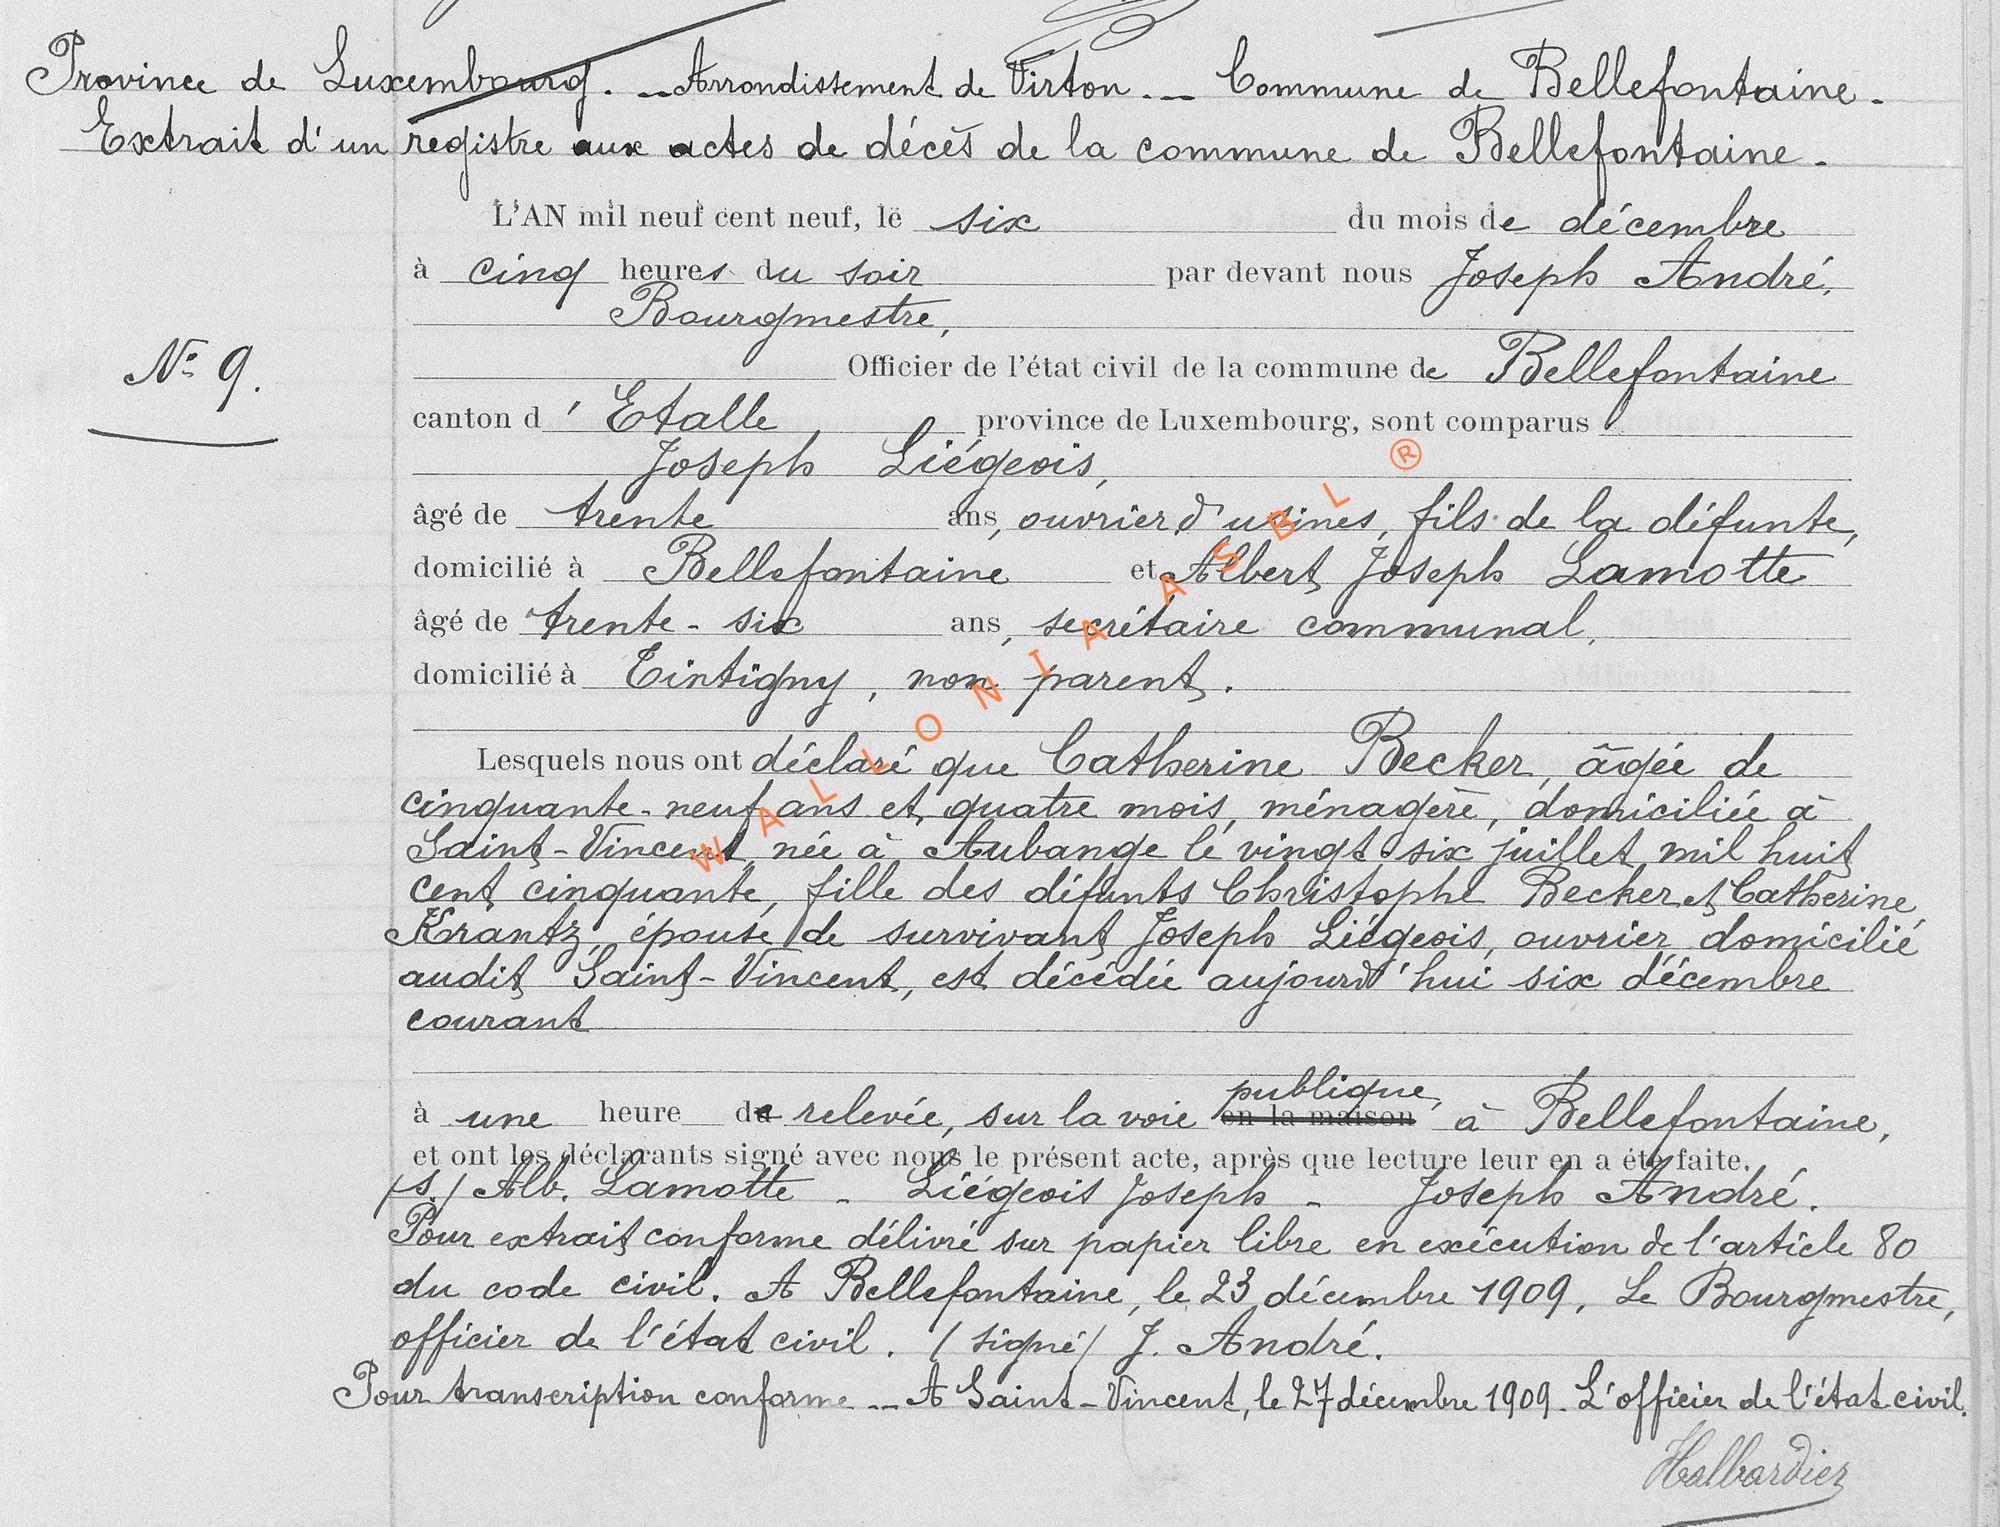 Province de Luxembourg. — Arrondissement de Virton. — Commune de Bellefontaine.
Extrait d'un registre aux actes de décès de la commune de Bellefontaine.
L'AN mil neuf cent neuf, le six du mois de décembre
à cinq heures du soir par devant nous Joseph André,
Bourgmestre,
N° 9.
Officier de l'état civil de la commune de Bellefontaine
canton d'Etalle province de Luxembourg, sont comparus
Joseph Liégeois,
âgé de trente ans, ouvrier d'usines, fils de la défunte,
domicilié à Bellefontaine et Albert Joseph Lamotte
âgé de trente-six ans, secrétaire communal,
domicilié à Tintigny, non parent.
Lesquels nous ont déclaré que Catherine Becker, âgée de
cinquante-neuf ans et quatre mois, ménagère, domiciliée à
Saint-Vincent, née à Aubange le vingt six juillet mil huit
cent cinquante, fille des défunts Christophe Becker et Catherine
Krantz, épouse de survivant Joseph Liégeois, ouvrier domicilié
audit Saint-Vincent, est décédée aujourd'hui six décembre
courant
à une heure de relevée, sur la voie publique, en la maison à Bellefontaine,
et ont les déclarants signé avec nous le présent acte, après que lecture leur en a été faite.
(s.) Alb. Lamotte - Liégeois Joseph - Joseph André.
Pour extrait conforme délivré sur papier libre en exécution de l'article 80
du code civil. A Bellefontaine, le 23 décembre 1909, Le Bourgmestre,
officier de l'état civil. (signé) J. André.
Pour transcription conforme — A Saint-Vincent, le 27 décembre 1909. L'officier de l'état civil.
Halbardier
WALLONIA ASBL ®